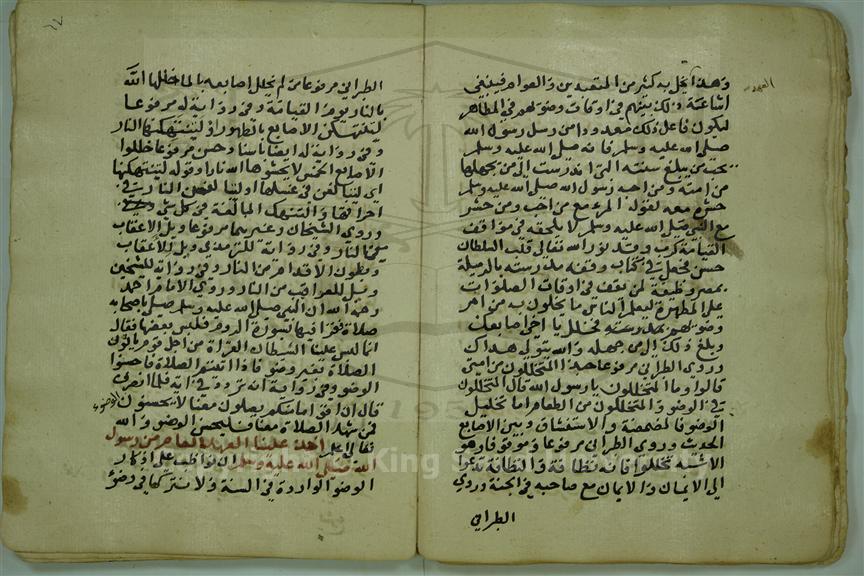 وهذا يخل به كثير من المتعبدين والعوام فينبغي
اشاعته ذلك بينهم في اوقات وضوءهم في المطاهر
ليكون فاعل ذلك معدودا من رسل رسول الله
صلى الله عليه وسلم فانه صلى الله عليه وسلم
يحب من يبلغ سنته التي اندرست الى من يجهلها
من امته ومن احبه رسول الله صلى الله عليه وسلم
حشره معه لقوله المرء مع من احب ومن حشر
مع النبي صلى الله عليه وسلم لا يلحقه في مواقف
القيامة كرب وقد نور الله تعالى قلب السلطان
حسن فجعل في كتاب وقفه مدرسته بالرميلة
بمصر وظيفة لمن يقف في اوقات الصلوات
على المطهرة ليعلم الناس ما يخلون به من امر
وضوءهم فخلل يا اخي اصابعك
وبلغ ذلك الى من جهله والله يتولى هداك
وروى الطبراني مرفوعا حبذا المتخللون من امتي
قالوا وما المتخللون يا رسول الله قال المتخللون
في الوضوء والمتخللون من الطعام اما تخليل
الوضوء فالمضمضة والاستنشاق وبين الاصابع
الحديث وروى الطبراني مرفوعا وموقوفا وهو
الاشبه تخللوا فانه نظافة والنظافة تدعوا
الى الايمان والايمان مع صاحبه في الجنة وروى
الطبراني
الطبراني مرفوعا من لم يخلل اصابعه بالماء خللها الله
بالنار يوم القيامة وفي رواية له مرفوعا
لتنتهكن الاصابع بالطهور او لتنتهكنها النار
وفي رواية له ايضا باسناد حسن مرفوعا خللوا
الاصابع الخمس لا يحشوها الله نارا وقوله لتنتهكنها
اي لتبالغن في غسلها او لتبالغن النار في
احراقها والتنهك المبالغة في كل شيء
وروى الشيخان وغيرهما مرفوعا ويل للاعقاب
من النار وفي رواية للترمذي ويل للاعقاب
وبطون الاقدام من النار وفي رواية للشيخين
ويل للعراقيب من النار وروى الامام احمد
رحمه الله ان النبي صلى الله عليه وسلم صلى باصحابه
صلاة فقرا فيها بسورة الروم فلبس بعضها فقال
انما لبس علينا الشيطان القراة من اجل قوم ياتون
الصلاة بغير وضوء فاذا اتيتم الصلاة فاحسنوا
الوضوء وفي رواية انه تردد في اية فلما انصرف
قال ان اقواما منكم يصلون معنا لا يحسنون الوضوء
فمن شهد الصلاة معنا فليحسن الوضوء والله
تعالى اعلم اخذ علينا العهد العام من رسول
الله صلى الله عليه وسلم ان نواظب على اذكار
الوضوء الواردة في السنة ولا نتركها في وضوء